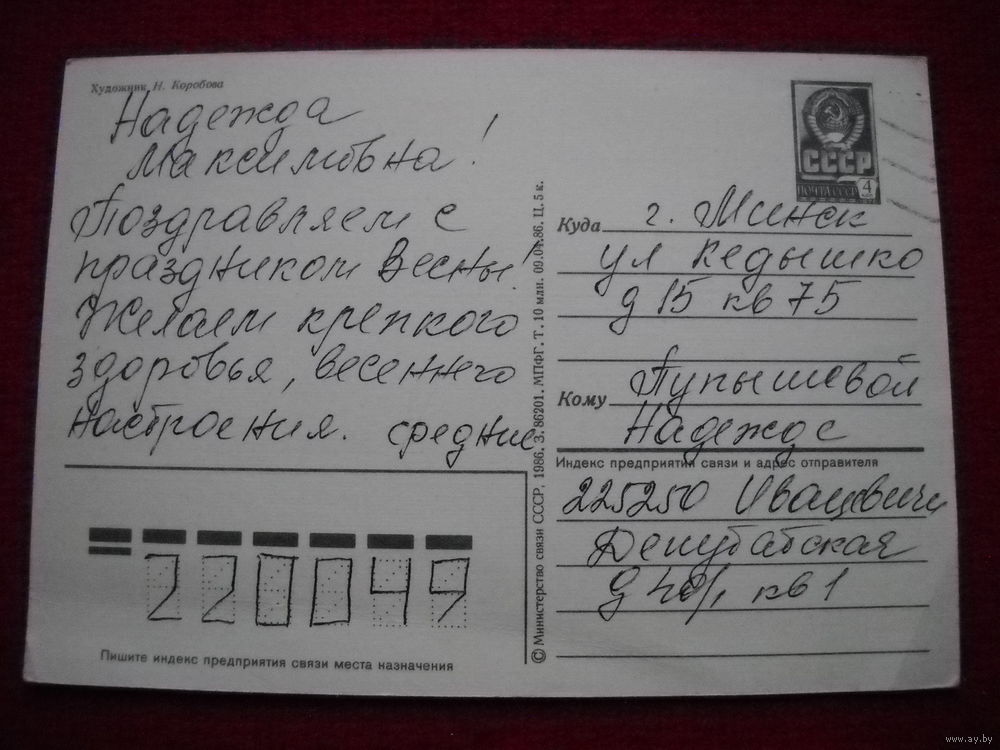 Художник Н. Коробова
Надежда
Максимовна!
Поздравляем с
праздником Весны!
Желаем крепкого
здоровья, весеннего
настроения. средние
СССР
ПОЧТА СССР
4
Куда г. Минск
ул Кедышко
д 15 кв 75
Кому Пупышевой
Надежде
Индекс предприятия связи и адрес отправителя
225250 Ивацевичи
Депутатская
д 40/1 кв 1
220049
Пишите индекс предприятия связи места назначения
© Министерство связи СССР, 1986. З. 86201. МПФГ. Т. 10 млн. 09.04.86. Ц. 5 к.
www.ay.by